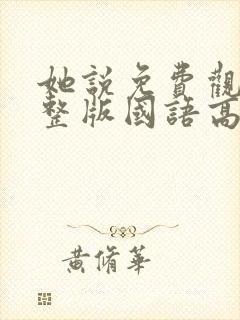 她説免費觀
整版國語高
黃脩華